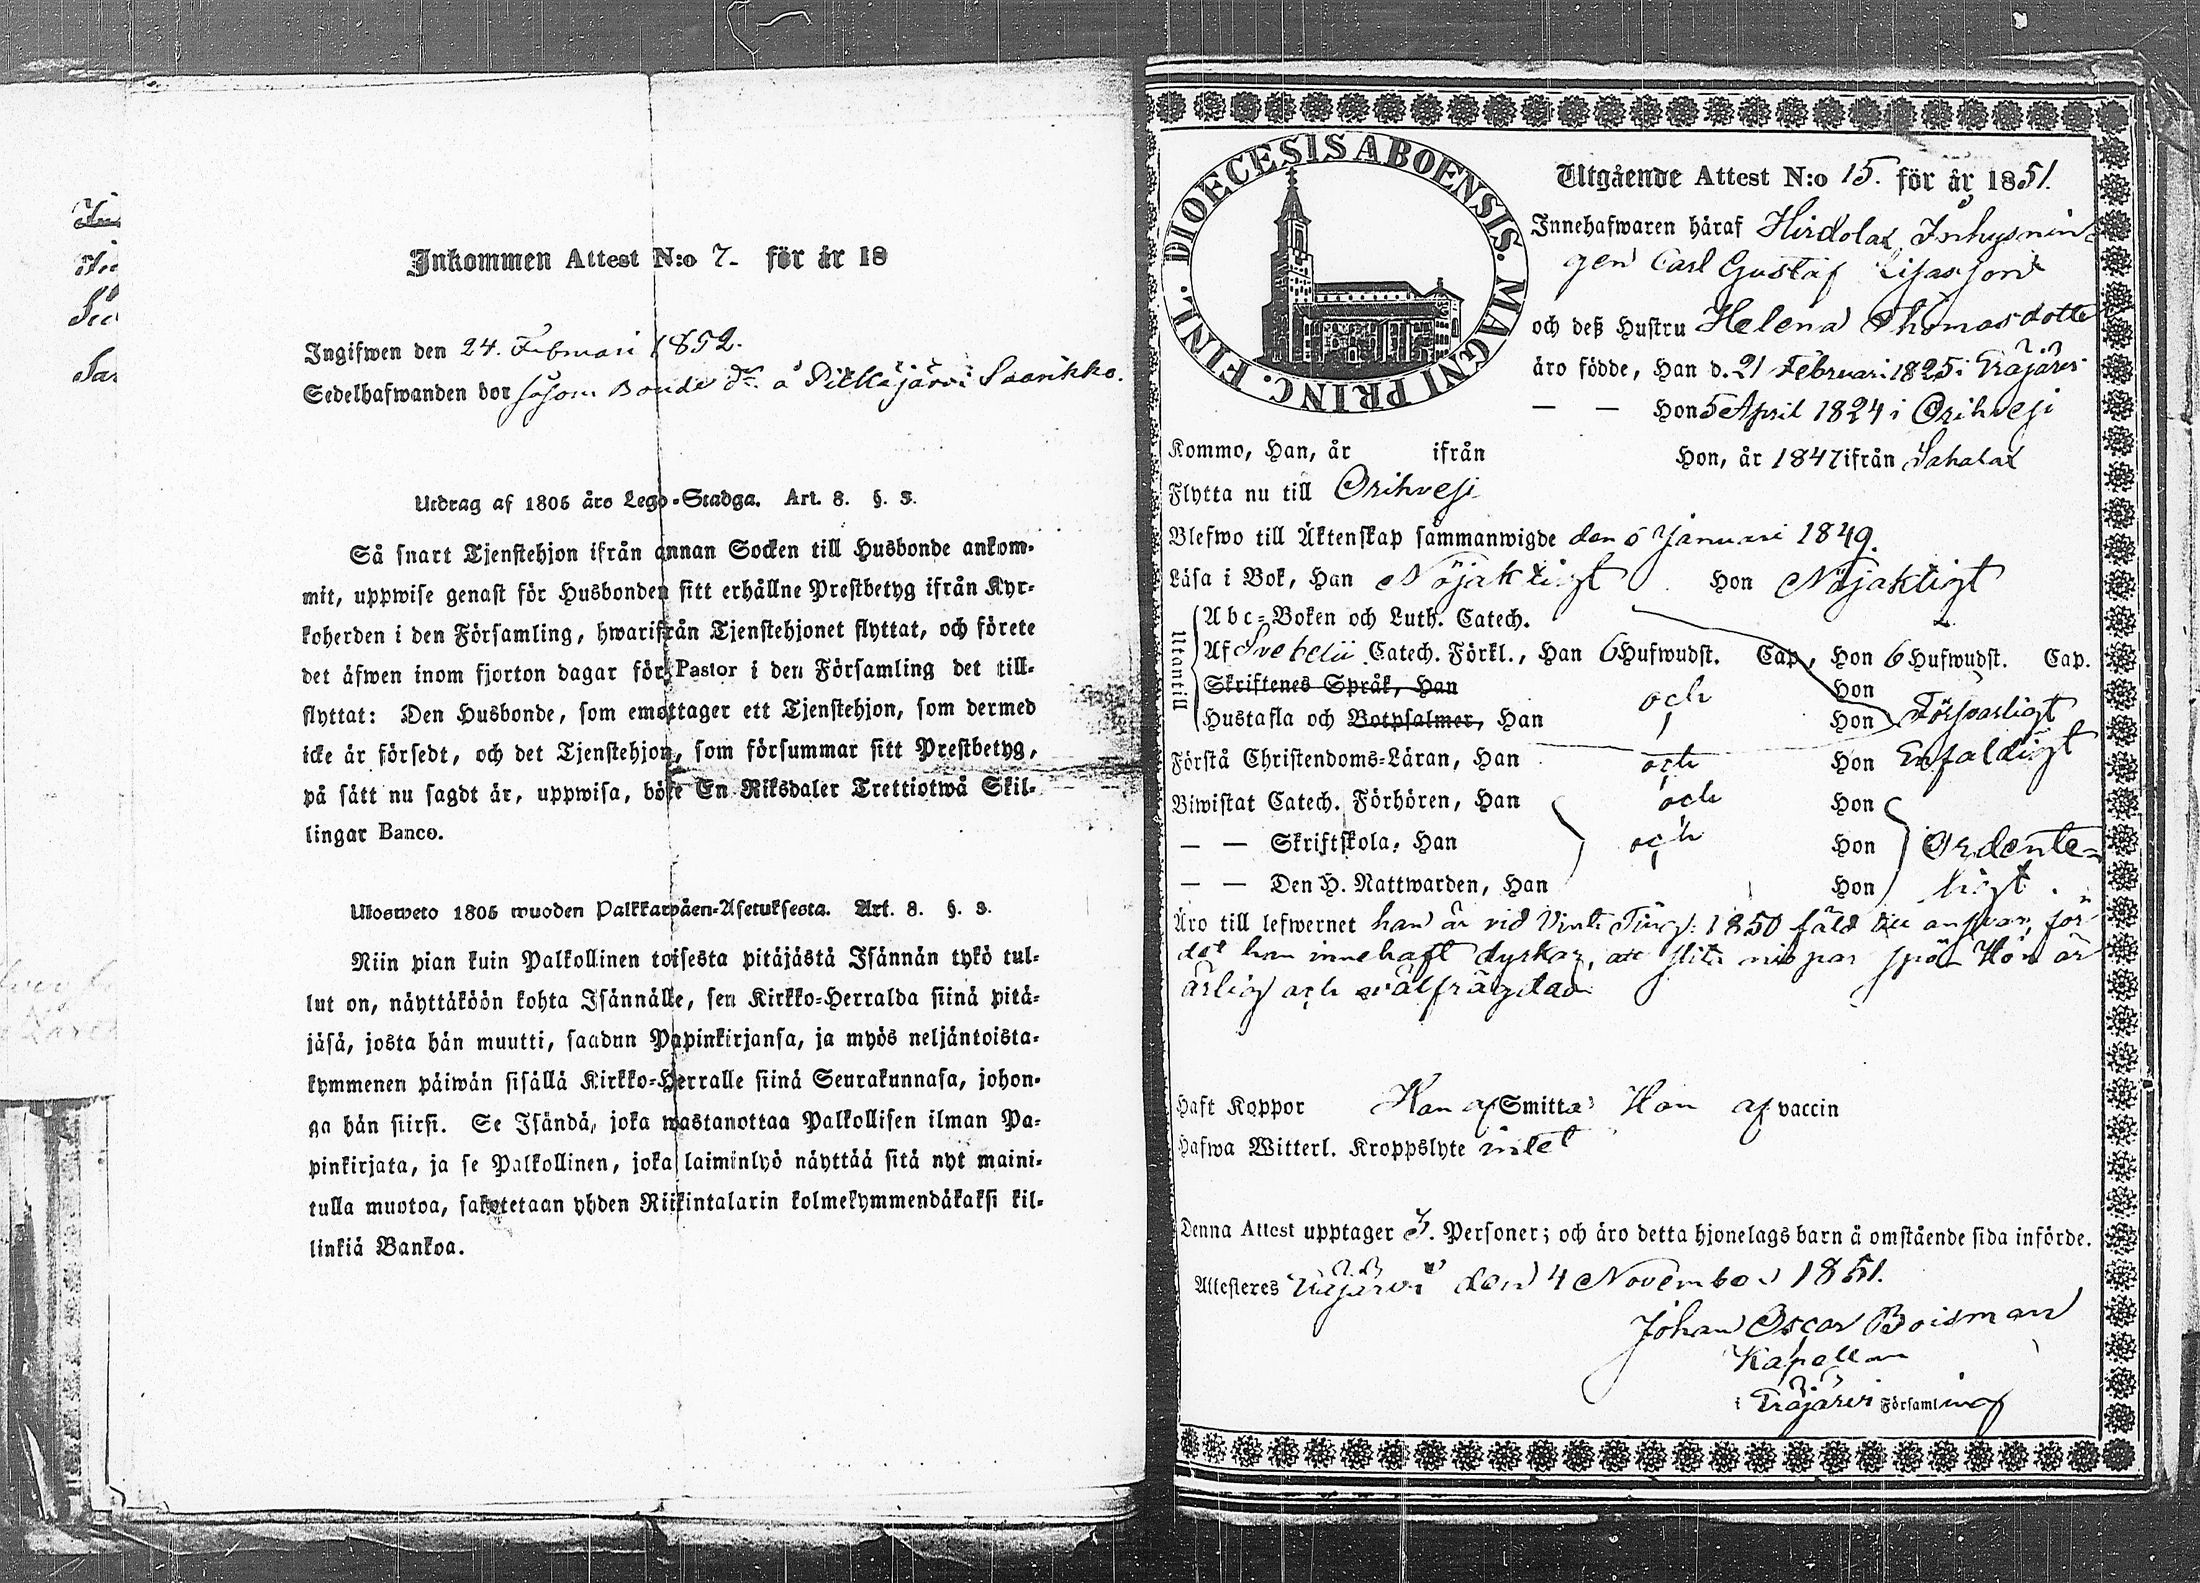 Inkommen Attest N:o 7. för år 18
Ingifwen den 24. Februari 1852.
Sedelhafwanden bor såsom Bonde å Pitkäjärvi Saarikko.
Utdrag af 1805 års Lego-Stadga. Art. 8. §. 3.
Så snart Tjenstehjon ifrån annan Socken till Husbonde ankom-
mit, uppwise genast för Husbonden sitt erhållne Prestbetyg ifrån Kyr-
koherden i den Församling, hwarifrån Tjenstehjonet flyttat, och förete
det äfwen inom fjorton dagar för Pastor i den Församling det till-
flyttat: Den Husbonde, som emottager ett Tjenstehjon, som dermed
icke är försedt, och det Tjenstehjon, som försummar sitt Prestbetyg,
på sätt nu sagdt är, uppwisa, böte En Riksdaler Trettiotwå Skil-
lingar Banco.
Ulosweto 1805 wuoden Palkkawäen-Asetuksesta. Art. 8. §. 3.
Niin pian kuin Palkollinen toisesta pitäjästä Isännän tykö tul-
lut on, näyttäköön kohta Isännälle, sen Kirkko-Herralda siinä pitä-
jäsä, josta hän muutti, saadun Papinkirjansa, ja myös neljäntoista-
kymmenen päiwän sisällä Kirkko-Herralle siinä Seurakunnasa, johon-
ga hän siirsi. Se Isändä, joka wastanottaa Palkollisen ilman Pa-
pinkirjata, ja se Palkollinen, joka laiminlyö näyttää sitä nyt maini-
tulla muotoa, sakotetaan yhden Riikintalarin kolmekymmendäkaksi kil-
linkiä Bankoa.
DIOECESIS ABOENSIS. MAGNI PRINC. FINL.
Utgående Attest N:o 15. för år 1851.
Innehafwaren häraf Hirdolax Inhysnin-
gen Carl Gustaf Lisasson
och deß Hustru Helena Thomasdotte
äro födde, Han d. 21 Februari 1825 i Eräjärvi
— — Hon 5 April 1824 i Orihvesi
Kommo, Han, år ifrån Hon, år 1847 ifrån Sahalax
Flytta nu till Orihvesi
Blefwo till Äktenskap sammanwigde den 6 Januari 1849.
Läsa i Bok, Han Nöjaktigt Hon Nöjaktigt
Utantill
Abc-Boken och Luth. Catech.
Af Svebelii Catech. Förkl., Han 6 Hufwudst. Cap, Hon 6 Hufwudst. Cap.
Skriftenes Språk, Han Hon
Hustafla och Botpsalmer, Han och Hon Försvarligt
Förstå Christendoms-Läran, Han och Hon Enfaldigt
Biwistat Catech. Förhören, Han och Hon
— — Skriftskola, Han och Hon Ordente-
— — Den H. Nattwarden, Han Hon ligt.
Äro till lefwernet han är vid Vinter Ting 1850 fäld till answar, för
det han innehaft dyrkar, att slita nio par spö. Hon är
ärlig och välfrägdad
Haft Koppor Han af Smitta Hon af vaccin
Hafwa Witterl. Kroppslyte intet
Denna Attest upptager 3. Personer; och äro detta hjonelags barn å omstående sida införde.
Attesteres Eräjärvi den 4 November 1851.
Johan Oscar Boisman
Kapellan
i Eräjärvi Församling